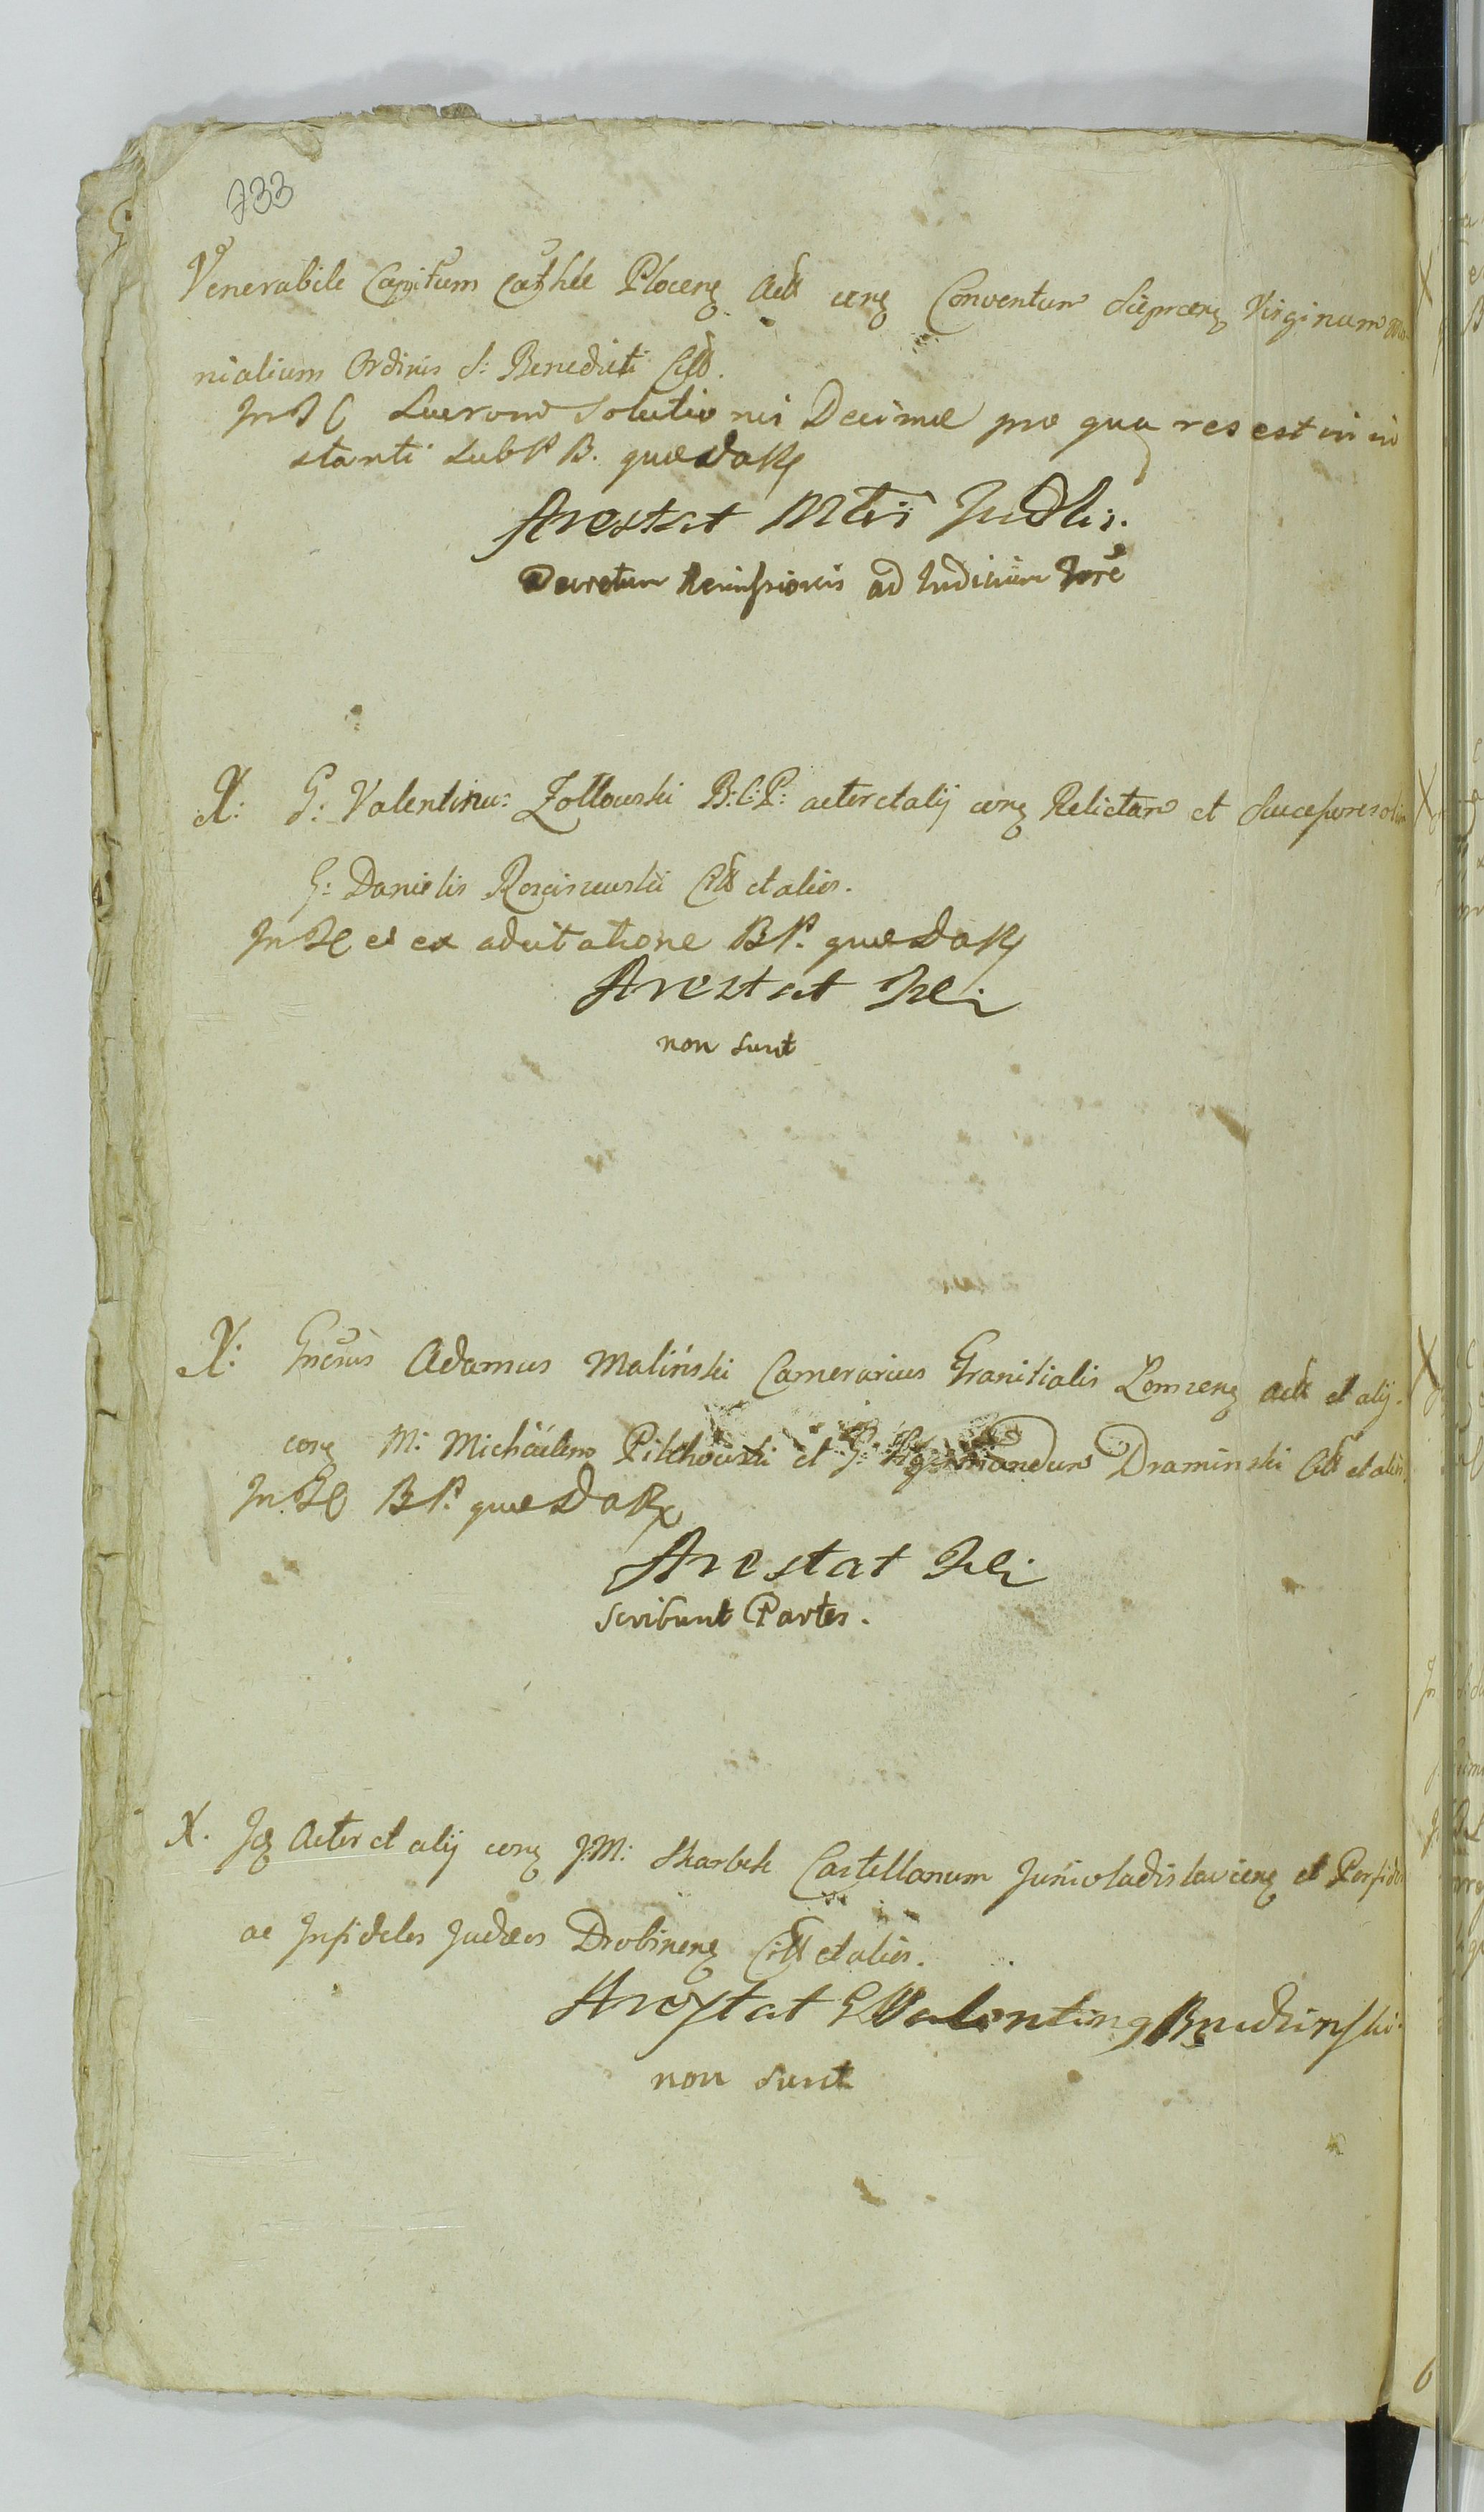 733
Venerabile Capitum Cathle Plocens Actt cons Conventum Sieprcens Virginum Mo
nialium Ordinis S: Benedicti Citt.
In T C Lucrorum Solutionis Decimæ pro qua res est in in
stanti Sub P B. quæ dans
Arestat Mtri Judtis.
Decretum Remissionis ad Iudicium
X: G: Valentinus Zołtowski B:C:P: actor et alij cons Relictam et Successores olim
G: Danielis Rosciszewski Citt et alios.
In et ex adcitatione B P. quæ dans
Arestat Rei
non sunt
X: Gnosus Adamus Maliński Camerarius Granitialis Lomzens actt et alij.
cons M: Michaelem Pilchowski et G: Draminski Citt et alios
In B P. quæ dans
Arestat Rei
Scribunt Partes.
X. Id Actor et alij cons J.M: Skarbek Castellanum Juniwladislaviens et Perfidos
ac Infideles Judæos Drobinens Citt et alios.
Arestat G Valentin9 Brudzinski.
non sunt